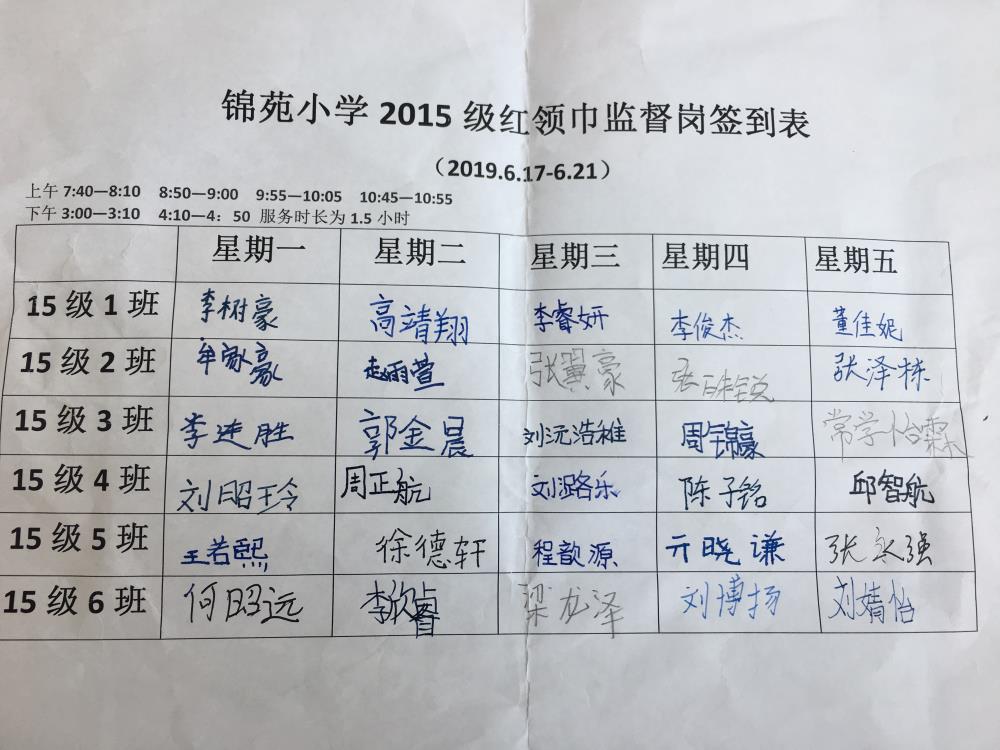 锦苑小学 2015 级红领巾监督岗签到表
（2019.6.17-6.21）
上午 7:40—8:10 8:50—9:00 9:55—10:05 10:45—10:55
下午 3:00—3:10 4:10—4：50 服务时长为 1.5 小时
星期一 星期二 星期三 星期四 星期五
15 级 1 班 李树豪 高靖翔 李睿妍 李俊杰 董佳妮
15 级 2 班 牟家豪 赵雨萱 张翼豪 张泽栋
15 级 3 班 李进胜 郭金晨 刘沅浩 周锦豪 常学怡霖
15 级 4 班 刘昭玲 周正航 刘潞乐 陈子铭 邱智航
15 级 5 班 王若熙 徐德轩 程歆源 亓晓谦 张永强
15 级 6 班 何昭远 李欣睿 梁龙泽 刘博扬 刘婧怡